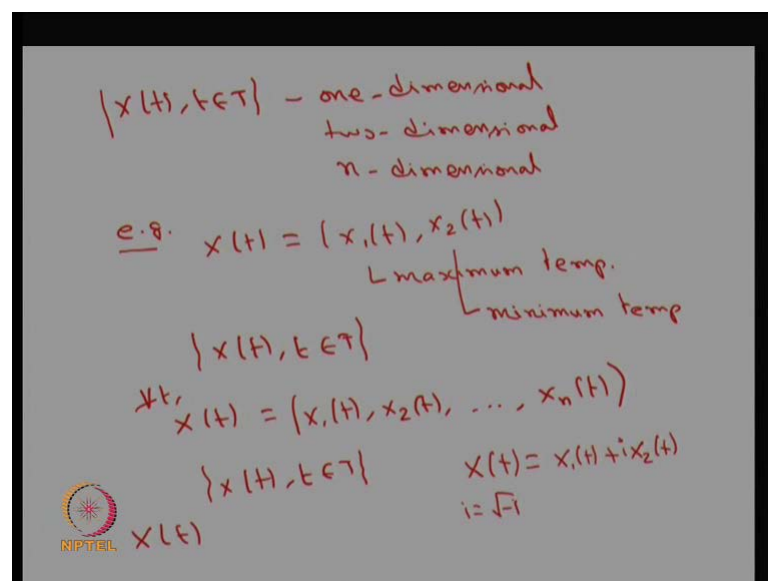 {X(t), t∈T} - one-dimensional
two-dimensional
n-dimensional
e.g. X(t) = (X₁(t), X₂(t))
maximum temp.
minimum temp
{X(t), t∈T}
∀t,
X(t) = (X₁(t), X₂(t), ..., Xₙ(t))
{X(t), t∈T} X(t) = X₁(t)+iX₂(t)
i=√-1
X(t)
NPTEL